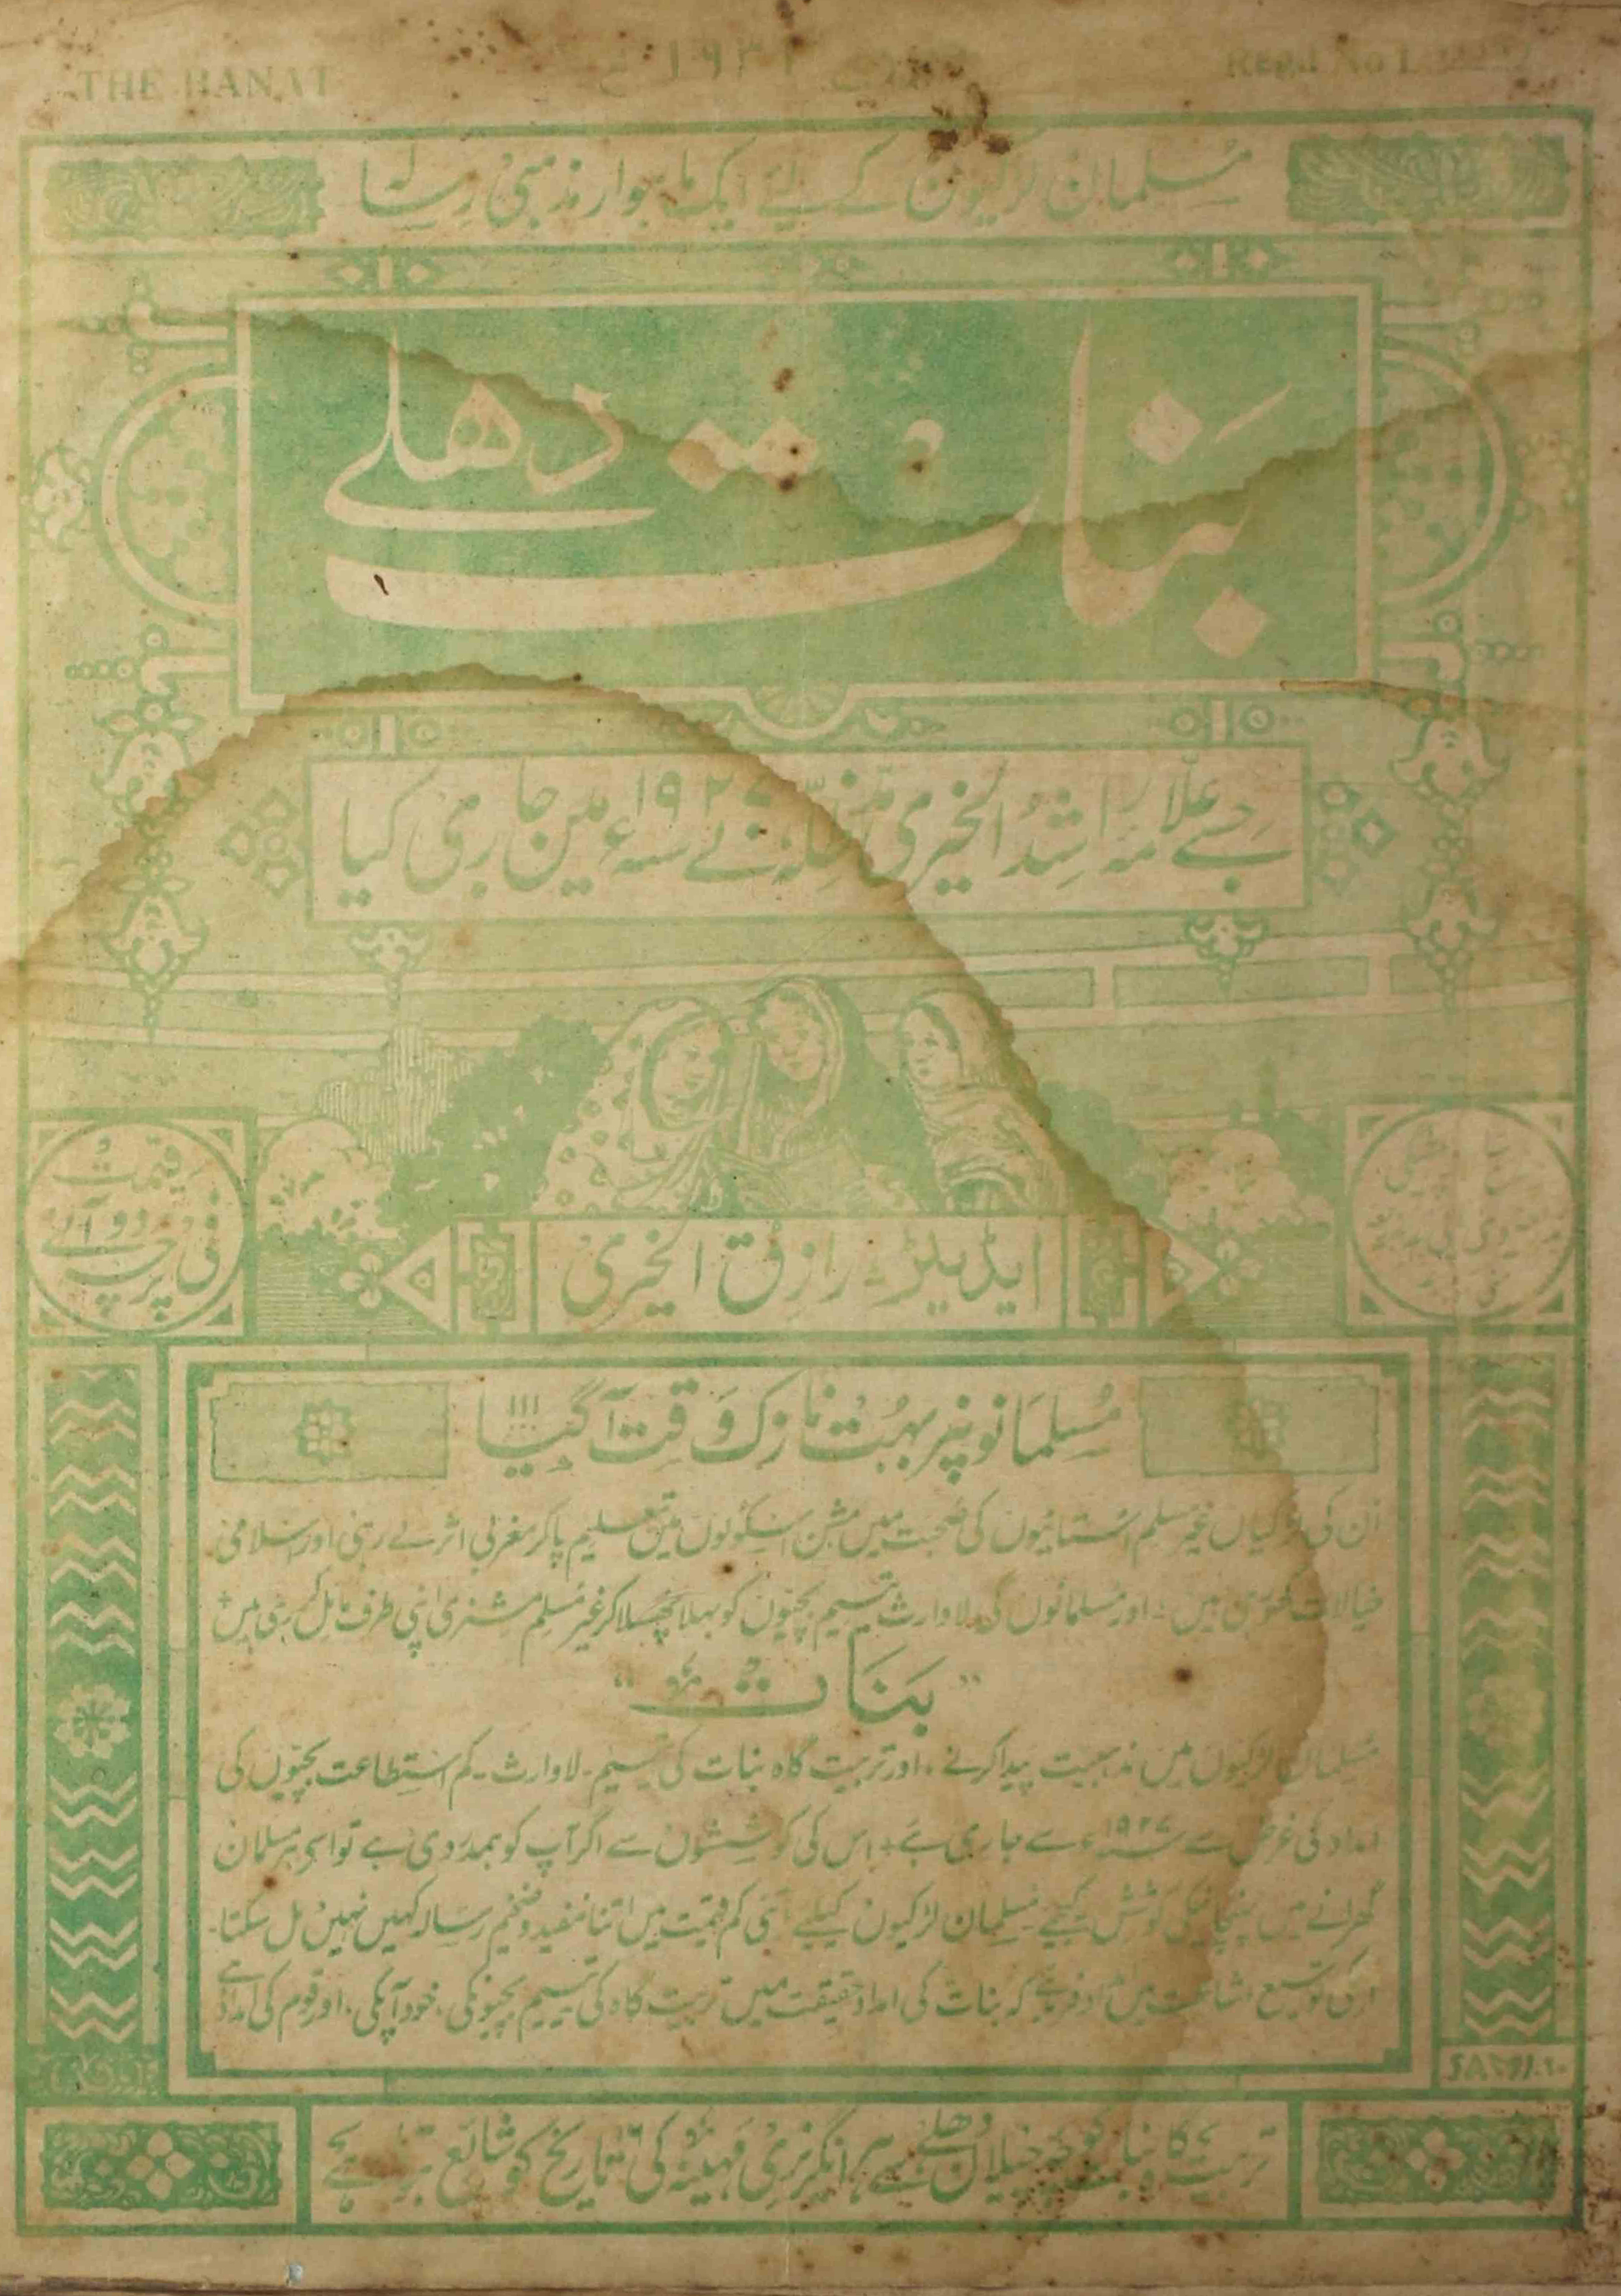 THE BANAT
۱۹۳۱ ع
Regd No L
مسلمان لڑکیوں کے لئے ایک ماہوار مذہبی رسالہ
بنات دھلی
جسے علامہ راشد الخیری مدظلہ نے سنہ ۱۹۲۷ء میں جاری کیا
قیمت
فی پرچہ دو آنے
ایڈیٹر۔ رازق الخیری
مسلمانونپر بہت نازک وقت آگیا !!!
ان کی لڑکیاں غیر مسلم استانیوں کی صحبت میں مشن اسکولوں میں تعلیم پاکر مغربی اثر لے رہی اور اسلامی
خیالات کھو رہی ہیں۔ اور مسلمانوں کی لاوارث یتیم بچیوں کو بہلا پھسلا کر غیر مسلم مشنری اپنی طرف مائل کر رہی ہیں
"بنات"
مسلمان لڑکیوں میں مذہبیت پیدا کرنے ، اور تربیت گاہ بنات کی یتیم۔ لاوارث۔ کم استطاعت بچیوں کی
امداد کی غرض سے سنہ ۱۹۲۷ء سے جاری ہے۔ اس کی کوششوں سے اگر آپ کو ہمدردی ہے تو اسے ہر مسلمان
گھرانے میں پہنچانیکی کوشش کیجئے۔ مسلمان لڑکیوں کیلئے اتنی کم قیمت میں اتنا مفید و ضخیم رسالہ کہیں نہیں مل سکتا۔
اسکی توسیع اشاعت میں امداد فرمائیے کہ بنات کی امداد حقیقت میں تربیت گاہ کی یتیم بچیونکی، خود آپکی، اور قوم کی امداد ہے
تربیت گاہ بنات کوچہ چیلان دھلی سے ہر انگریزی مہینہ کی ۱۶ تاریخ کو شائع ہوتا ہے